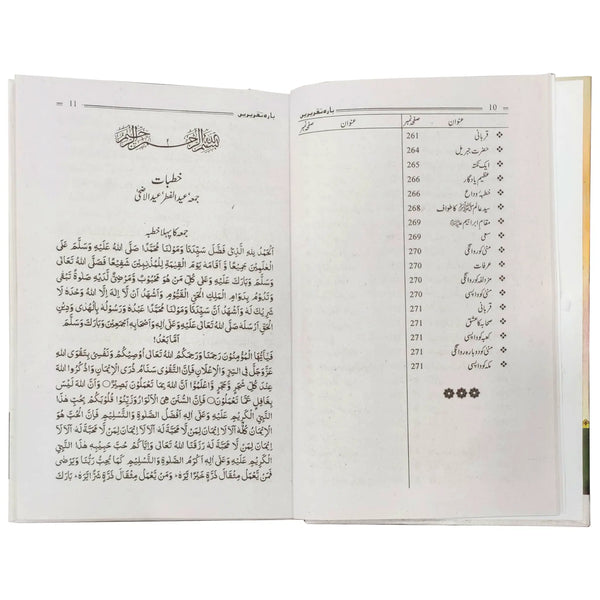 10 بارہ تقریریں
عنوان صفحہ نمبر عنوان صفحہ نمبر
❖ قربانی 261
❖ حضرت جبریل 264
❖ ایک نکتہ 265
❖ عظیم یادگار 266
❖ خطبۂ وداع 266
❖ سید عالم ﷺ کا طواف 268
❖ مقام ابراہیم 269
❖ سعی 269
❖ منیٰ کو روانگی 270
❖ عرفات 270
❖ مزدلفہ کو روانگی 270
❖ منیٰ کو واپسی 270
❖ قربانی 271
❖ صحابہ کا عشق 271
❖ کعبہ کو واپسی 271
❖ منیٰ کو دوبارہ روانگی 271
❖ مکہ کو واپسی 271
بارہ تقریریں 11
بسم اللہ الرحمن الرحیم
خطبات
جمعہ، عید الفطر، عید الاضحیٰ
جمعہ کا پہلا خطبہ
اَلْحَمْدُ لِلّٰهِ الَّذِیْ فَضَّلَ سَیِّدَنَا وَمَوْلٰنَا مُحَمَّدًا صَلَّی اللهُ عَلَیْهِ وَسَلَّمَ عَلَی
الْعٰلَمِیْنَ جَمِیْعًا وَّ اَقَامَهٗ یَوْمَ الْقِیٰمَةِ لِلْمُذْنِبِیْنَ شَفِیْعًا فَصَلَّی اللهُ تَعَالٰی
وَسَلَّمَ وَبَارَكَ عَلَیْهِ وَ عَلٰی كُلِّ مَنْ هُوَ مَحْبُوْبٌ وَّمَرْضِیٌّ لَّدَیْهِ صَلٰوةً تَبْقٰی
وَتَدُوْمُ بِدَوَامِ الْمَلِكِ الْحَیِّ الْقَیُّوْمِ وَاَشْهَدُ اَنْ لَّا اِلٰهَ اِلَّا اللهُ وَحْدَهٗ لَا
شَرِیْكَ لَهٗ وَاَشْهَدُ اَنَّ سَیِّدَنَا وَمَوْلٰنَا مُحَمَّدًا عَبْدُهٗ وَرَسُوْلُهٗ بِالْهُدٰی وَدِیْنِ
الْحَقِّ اَرْسَلَهٗ صَلَّی اللهُ تَعَالٰی عَلَیْهِ وَعَلٰی اٰلِهٖ وَاَصْحَابِهٖ اَجْمَعِیْنَ وَبَارَكَ وَسَلَّمَ
اَمَّا بَعْدُ!
فَیٰٓاَیُّهَا الْمُؤْمِنُوْنَ رَحِمَنَا وَرَحِمَكُمُ اللهُ تَعَالٰی اُوْصِیْكُمْ وَنَفْسِیْ بِتَقْوَی اللهِ
عَزَّوَجَلَّ فِی السِّرِّ وَالْاِعْلَانِ فَاِنَّ التَّقْوٰی سَنَامُ ذُرَی الْاِیْمَانِ وَاذْكُرُوا اللهَ
عِنْدَ كُلِّ شَجَرٍ وَّحَجَرٍ وَّاعْلَمُوْٓا اَنَّ اللهَ بِمَا تَعْمَلُوْنَ بَصِیْرٌ۝ وَ اَنَّ اللهَ لَیْسَ
بِغَافِلٍ عَمَّا تَعْمَلُوْنَ۝ فَاِنَّ السُّنَنَ هِیَ الْاَنْوَارُ وَزَیِّنُوْا قُلُوْبَكُمْ بِحُبِّ هٰذَا
النَّبِیِّ الْكَرِیْمِ عَلَیْهِ وَعَلٰی اٰلِهٖ اَفْضَلُ الصَّلٰوةِ وَالتَّسْلِیْمِ فَاِنَّ الْحُبَّ هُوَ
الْاِیْمَانُ كُلُّهٗ اَلَا لَآ اِیْمَانَ لِمَنْ لَّا مَحَبَّةَ لَهٗ اَلَا لَآ اِیْمَانَ لِمَنْ لَّا مَحَبَّةَ لَهٗ اَلَا لَآ
اِیْمَانَ لِمَنْ لَّا مَحَبَّةَ لَهٗ رَزَقَنَا اللهُ تَعَالٰی وَاِیَّاكُمْ حُبَّ حَبِیْبِهٖ هٰذَا النَّبِیِّ
الْكَرِیْمِ عَلَیْهِ وَعَلٰی اٰلِهٖ اَكْرَمُ الصَّلٰوةِ وَالتَّسْلِیْمِ كَمَا یُحِبُّ رَبُّنَا وَیَرْضٰی
فَمَنْ یَّعْمَلْ مِثْقَالَ ذَرَّةٍ خَیْرًا یَّرَهٗ، وَمَنْ یَّعْمَلْ مِثْقَالَ ذَرَّةٍ شَرًّا یَّرَهٗ، بَارَكَ